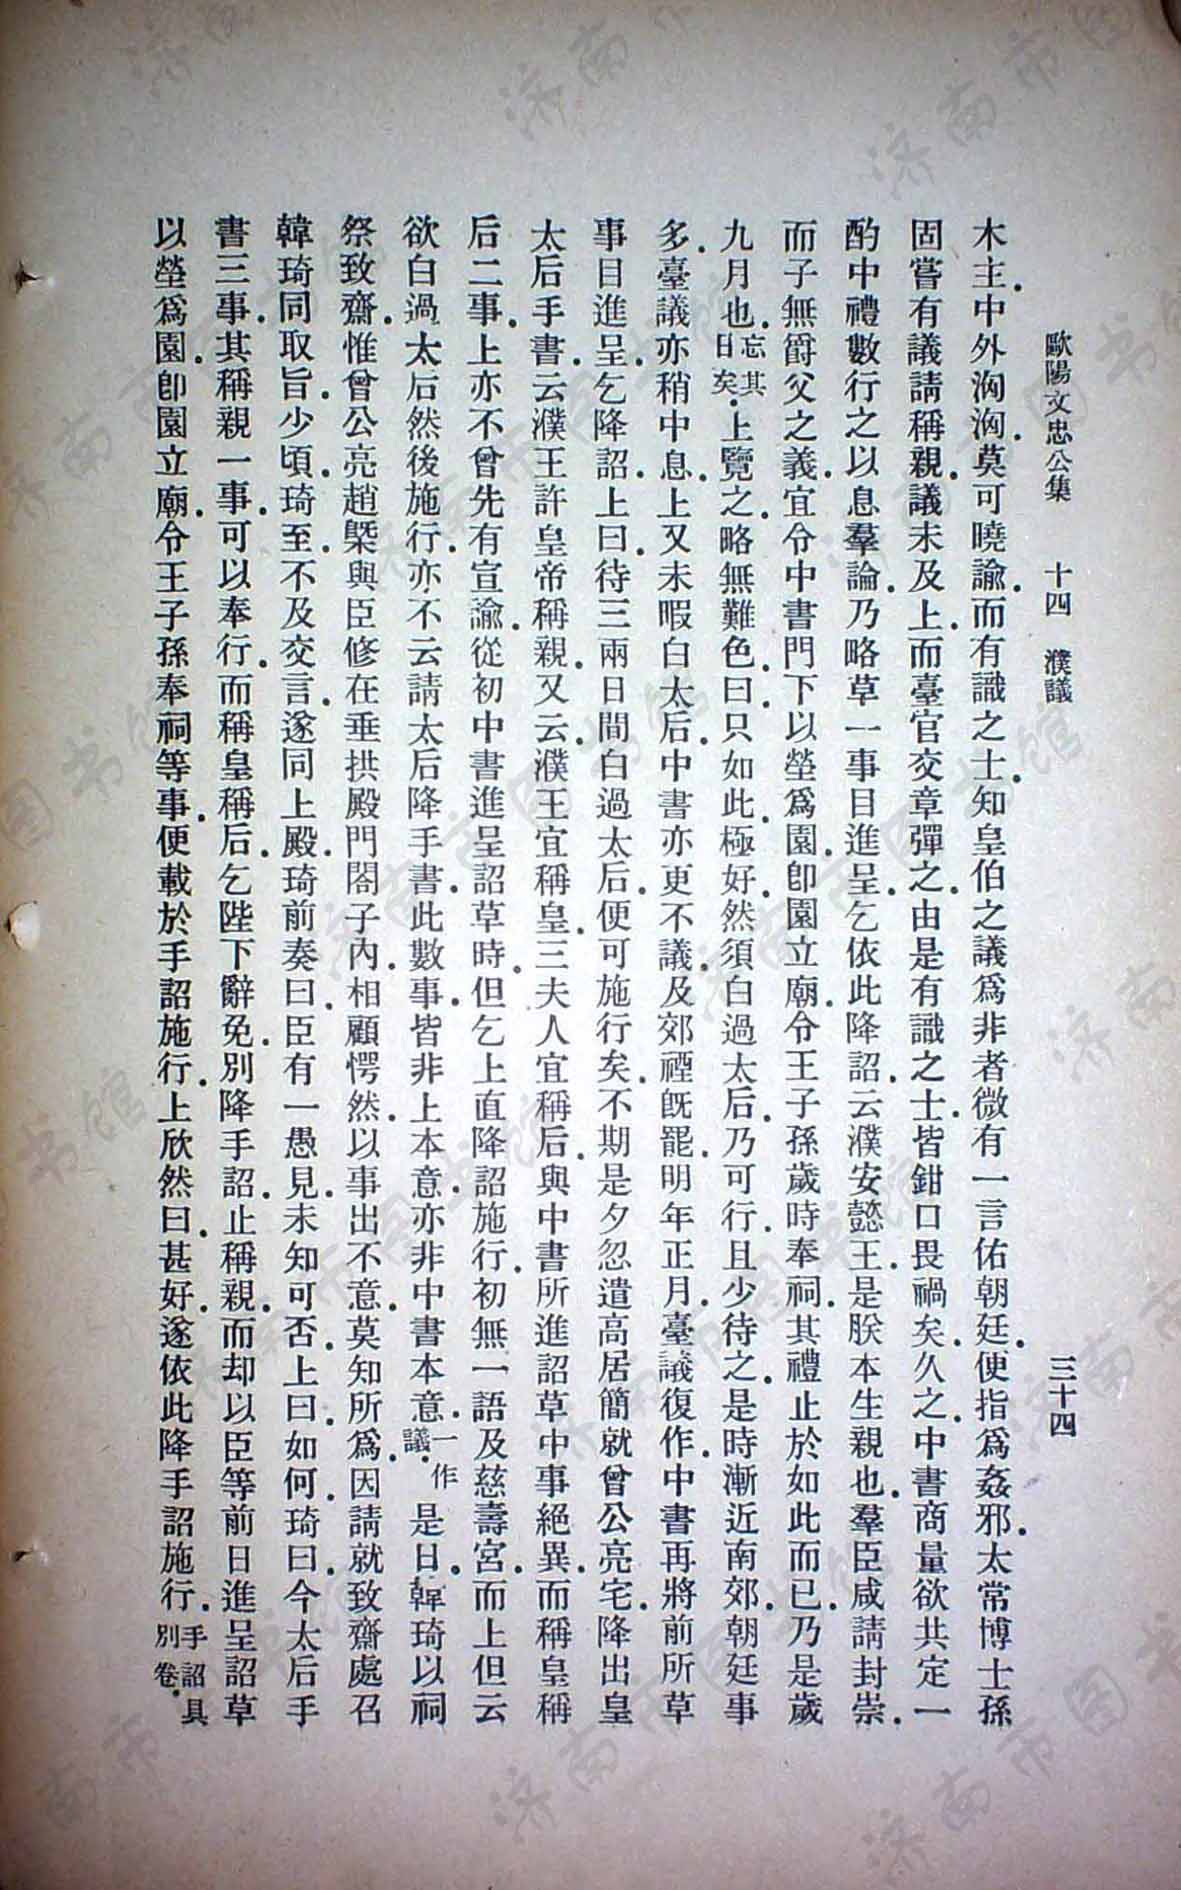 歐陽文忠公集 十四 濮議 三十四
木主．中外洶洶．莫可曉諭．而有識之士．知皇伯之議爲非者微有一言佑朝廷．便指爲姦邪．太常博士孫
固嘗有議請稱親．議未及上．而臺官交章彈之．由是有識之士．皆鉗口畏禍矣．久之．中書商量欲共定一
酌中禮數行之以息羣論．乃略草一事目進呈．乞依此降詔．云濮安懿王．是朕本生親也．羣臣咸請封崇．
而子無爵父之義．宜令中書門下以塋爲園．卽園立廟．令王子孫歲時奉祠．其禮止於如此而已．乃是歲
九月也．忘其日矣．上覽之．略無難色．曰．只如此．極好．然須白過太后．乃可行．且少待之．是時漸近南郊．朝廷事
多．臺議亦稍中息．上又未暇白太后．中書亦更不議．及郊禋旣罷．明年正月．臺議復作．中書再將前所草
事目進呈．乞降詔．上曰．待三兩日間．白過太后．便可施行矣．不期是夕忽遣高居簡就曾公亮宅．降出皇
太后手書．云濮王許皇帝稱親．又云．濮王宜稱皇．三夫人宜稱后．與中書所進詔草中事絕異．而稱皇稱
后二事．上亦不曾先有宣諭．從初中書進呈詔草時．但乞上直降詔施行．初無一語及慈壽宮．而上但云
欲白過太后然後施行．亦不云請太后降手書．此數事．皆非上本意．亦非中書本意．一作議．是日．韓琦以祠
祭致齋．惟曾公亮趙槩與臣修在垂拱殿門閤子內．相顧愕然．以事出不意．莫知所爲．因請就致齋處召
韓琦同取旨．少頃．琦至．不及交言．遂同上殿．琦前奏曰．臣有一愚見．未知可否．上曰．如何．琦曰．今太后手
書三事．其稱親一事．可以奉行．而稱皇稱后．乞陛下辭免．別降手詔．止稱親．而却以臣等前日進呈詔草
以塋爲園．卽園立廟．令王子孫奉祠等事．便載於手詔施行．上欣然曰．甚好．遂依此降手詔施行．手詔具別卷．
济南市图书馆